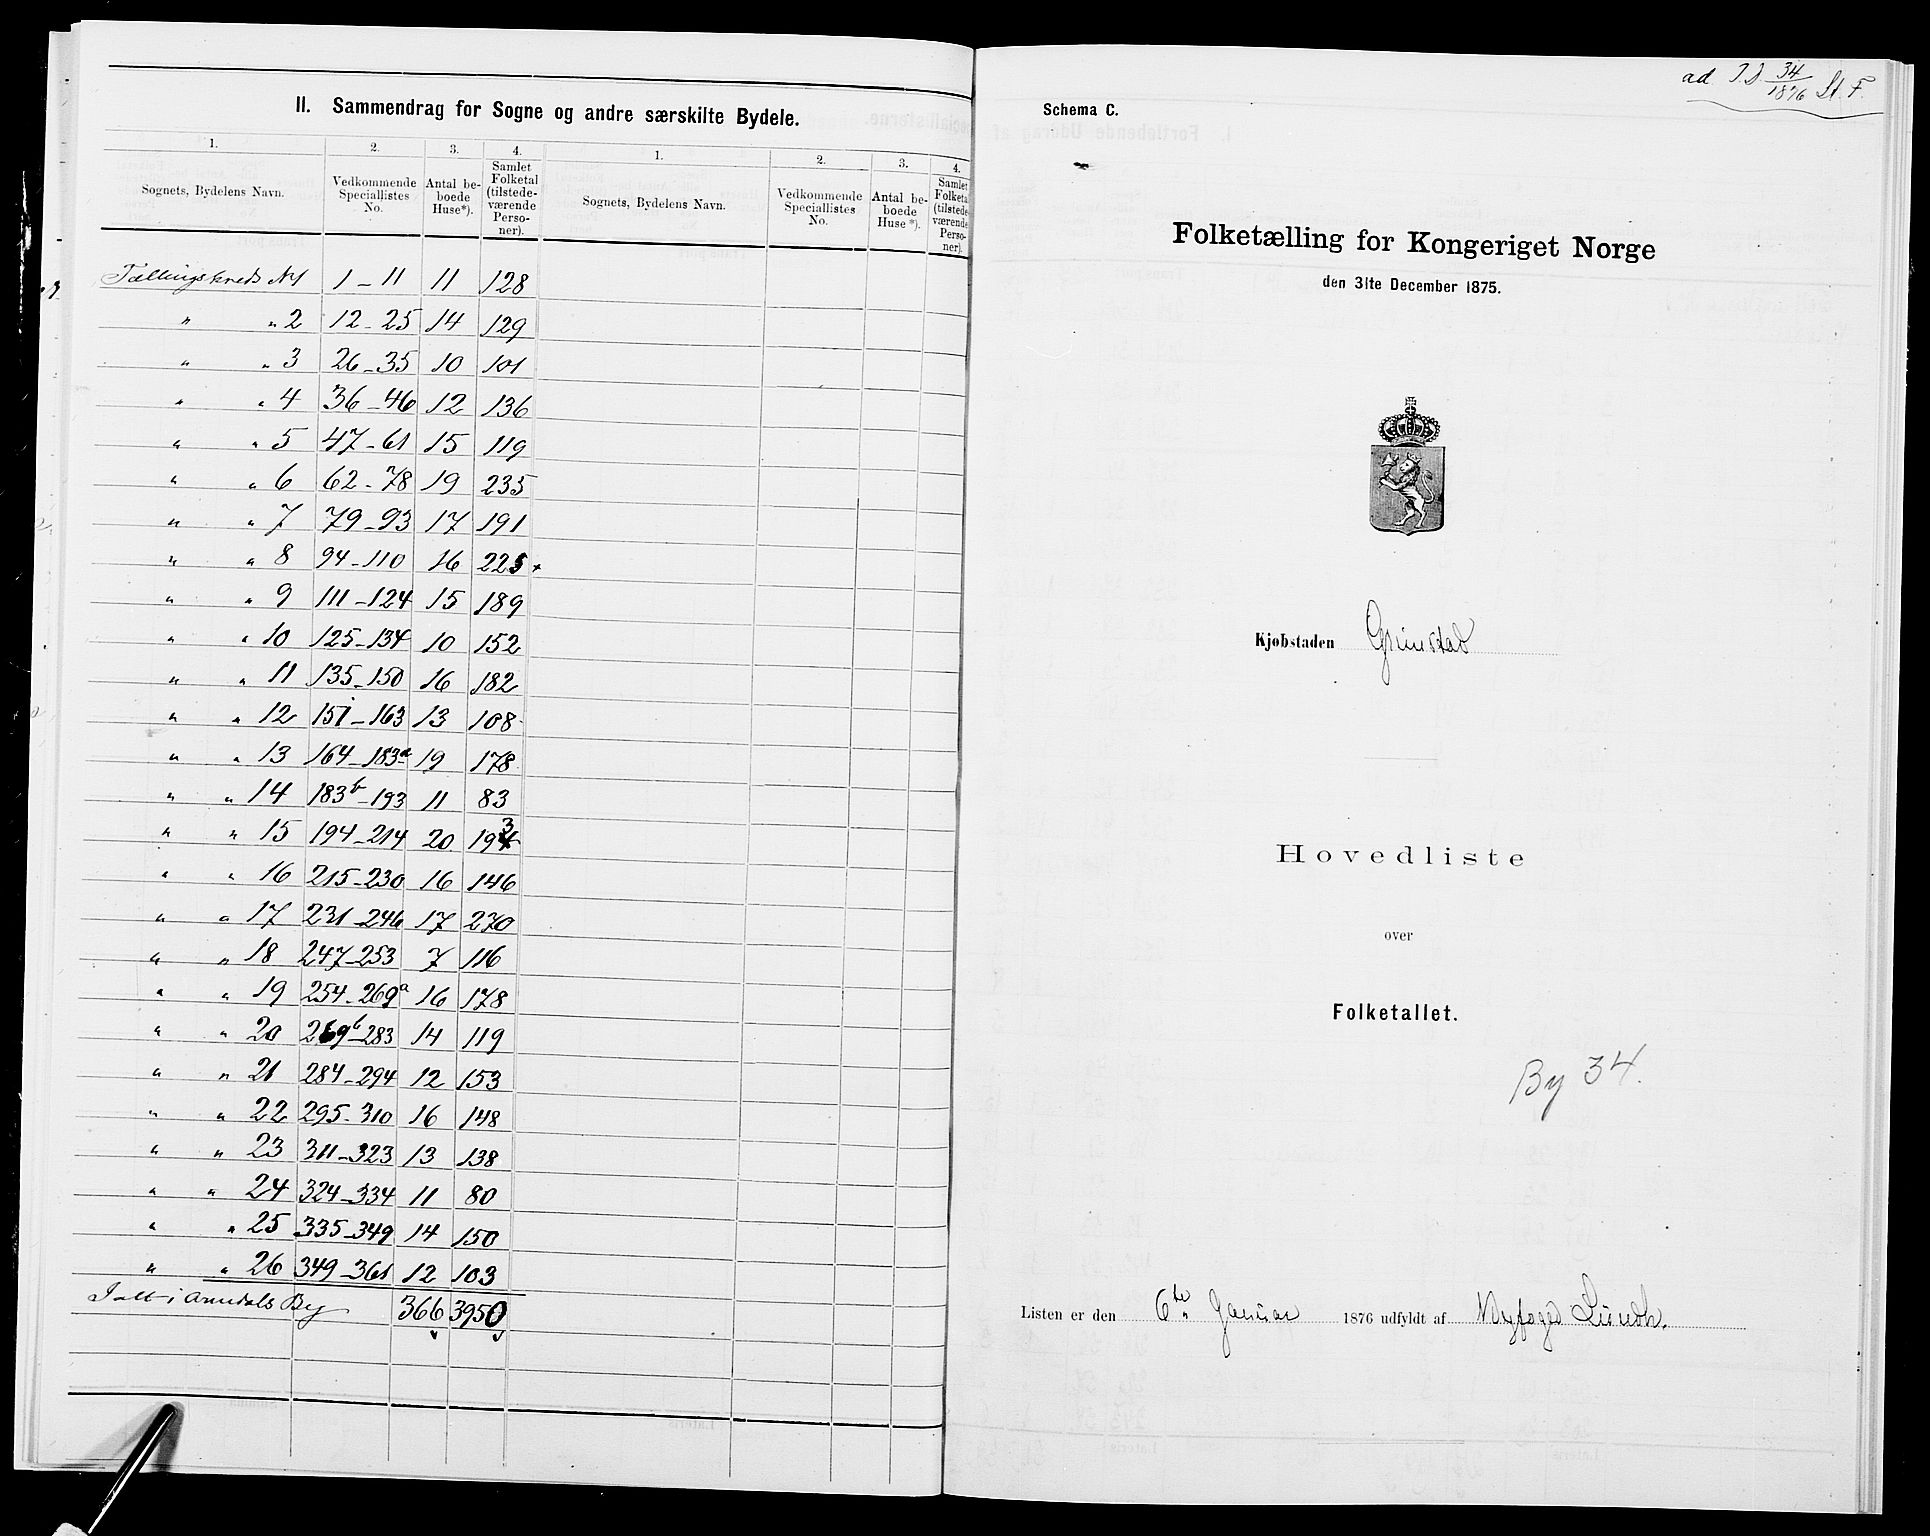 II. Sammendrag for Sogne og andre særskilte Bydele.
1. 2. 3. 4. 1. 2. 3. 4.
Sognets, Bydelens Navn. Vedkommende Speciallistes No. Antal beboede Huse*). Samlet Folketal (tilstedeværende Personer). Sognets, Bydelens Navn. Vedkommende Speciallistes No. Antal beboede Huse*). Samlet Folketal (tilstedeværende Personer).
Tællingskreds No 1 1-11 11 128
" " 2 12-25 14 129
" " 3 26-35 10 101
" " 4 36-46 12 136
" " 5 47-61 15 119
" " 6 62-78 19 235
" " 7 79-93 17 191
" " 8 94-110 16 225
" " 9 111-124 15 189
" " 10 125-134 10 152
" " 11 135-150 16 182
" " 12 151-163 13 108
" " 13 164-183a 19 178
" " 14 183b-193 11 83
" " 15 194-214 20 193
" " 16 215-230 16 146
" " 17 231-246 17 270
" " 18 247-253 7 116
" " 19 254-269a 16 178
" " 20 269b-283 14 119
" " 21 284-294 12 153
" " 22 295-310 16 148
" " 23 311-323 13 138
" " 24 324-334 11 80
" " 25 335-349 14 150
" " 26 349-361 12 103
Ialt i Arendals By 366 3950
ad J.J. 34/1876 St. F.
Schema C.
Folketælling for Kongeriget Norge
den 31te December 1875.
Kjøbstaden Grimstad
Hovedliste
over
Folketallet.
By 34.
Listen er den 6te Januar 1876 udfyldt af Byfoged Lundh.